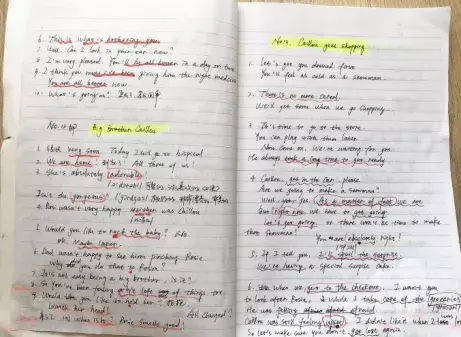 6. This is what is bothering you
7. Well. Can I look in your ear now?
8. I'm very pleased. You'll be all better in a day or two
9. I think you must've been giving him the right medicine
You are all better now
What's going on?
Big brother Caillou
1. very soon. Today I will go to hospital
2. We are home! All three of us!
3. She's absolutely adorable
Isn't she gorgeous
4. Rosie wasn't very happy neither was Caillou
5. Would you like to rock the baby? No
ok. Maybe later.
6. Dad wasn't happy to see him pinching Rosie.
Why did you do that to Rosie?
7. It's not easy being a big brother. is it?
8. So you've been feeling a bit left out of things too.
9. Would you like to hold her?
Watch her head!
All changed?
No12. Caillou goes shopping
1. Let's get you dressed first
You'll feel as cold as a snowman.
2. There is no more cereal.
We'll get some when we go shopping.
3. It's time to go to the store.
You can play with them later
Now come on. We're waiting for you
He always took a long time to get ready
4. Caillou, get in the car, please.
Are we going to make a snowman?
Well, yes. As a matter of fact we are
But right now we have to get going
Let's get going, or there won't be time to make
that Snowman!
You're absolutely right!
5. If I tell you. It'll spoil the surprise
We're having a special surprise
6. when we get to the checkout. I want you
to look after Rosie, while I take care of the groceries
He was falling afraid
Caillou was still feeling I didn't like it when I was lost
So let's make sure you don't get lost again